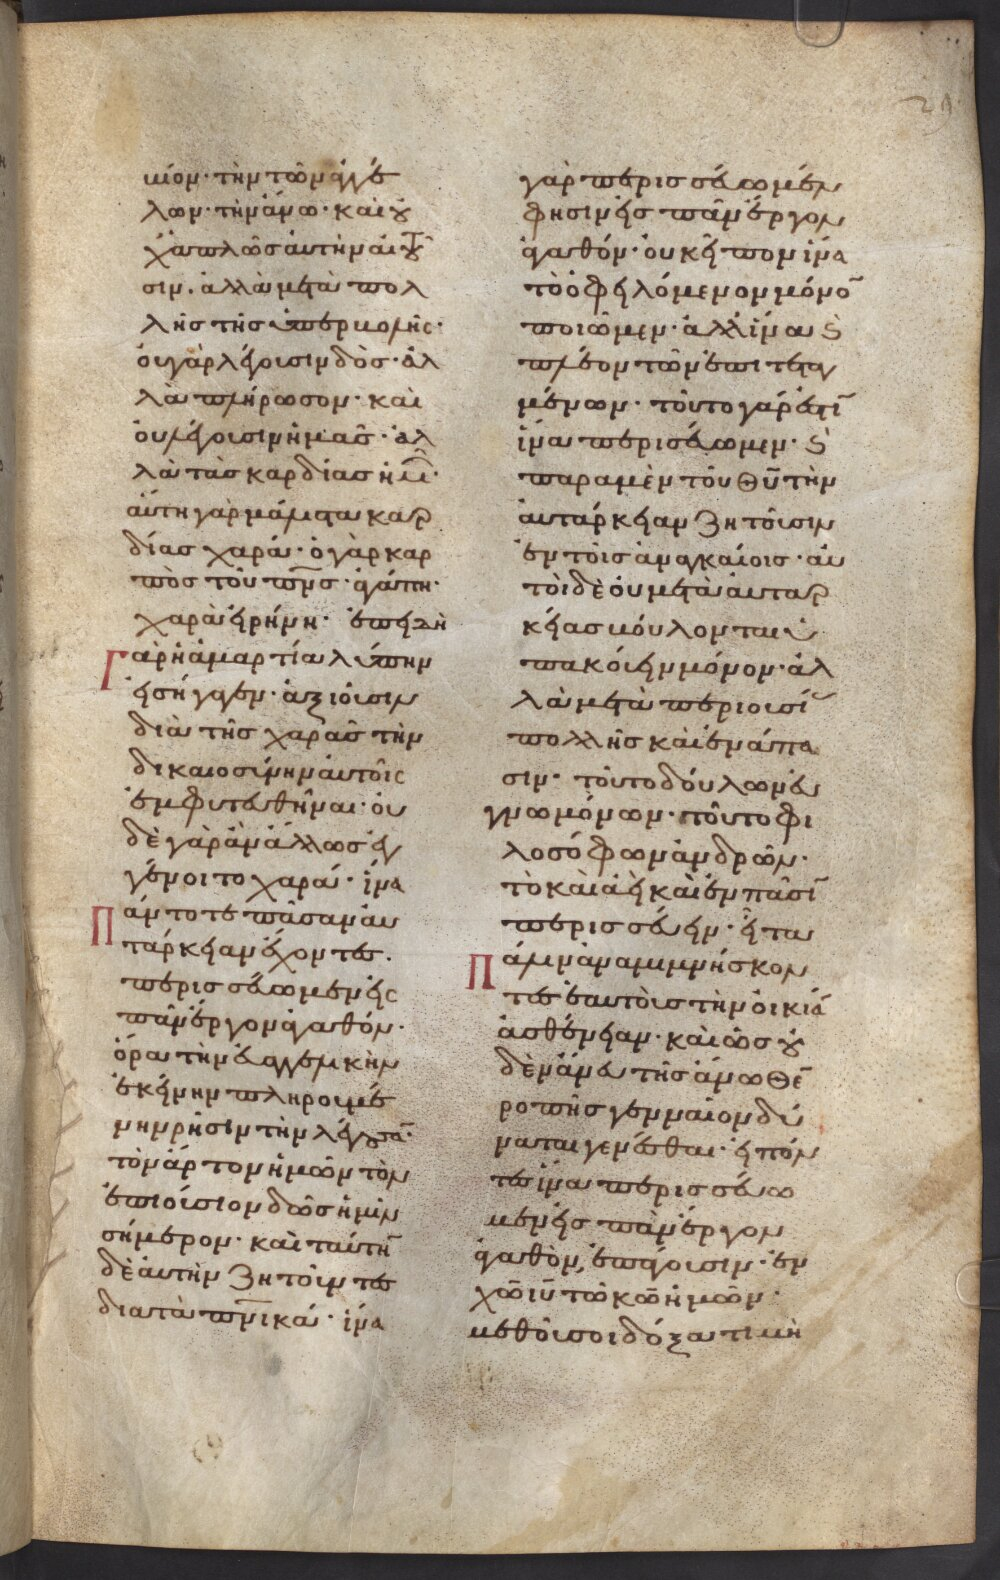 βίον· τὴν τῶν ἀγγέ
λων· τὴν ἄνω· καὶ οὐ
χἁπλῶς αὐτὴν αἰτοῦ
σιν. ἀλλὰ μετὰ πολ
λῆς τῆς ὑπερβολῆς·
οὐ γὰρ λέγουσιν δὸς· ἀλ
λὰ πλήρωσον· καὶ
οὐ λέγουσιν ἡμᾶς· ἀλ
λὰ τὰς καρδίας ἡμῶν·
αὕτη γὰρ μάλιστα καρ
δίας χαρά· ὁ γὰρ καρ
πὸς τοῦ πνς· ἀγάπη·
χαρὰ εἰρήνη· ἐπειδὴ
Γὰρ ἡ ἁμαρτία λύπην
εἰσήγαγεν· ἀξιοῦσιν
διὰ τῆς χαρᾶς τὴν
δικαιοσύνην αὐτοῖς
ἐμφυτευθῆναι· οὐ
δὲ γὰρ ἂν ἄλλως ἐγ
γένοιτο χαρά· ἵνα
Πάντοτε πᾶσαν αὐ
τάρκειαν ἔχοντες.
περισσεύωμεν εἰς
πᾶν ἔργον ἀγαθόν·
ὅρα τὴν εὐαγγελικὴν
ἐκείνην πληρουμέ
νην ρῆσιν τὴν λέγουσαν·
τὸν ἄρτον ἡμῶν τὸν
ἐπιούσιον δὸς ἡμῖν
σήμερον· καὶ ταύτην
δὲ αὐτὴν ζητοῦντες
διὰ τὰ πνικά· ἵνα
γὰρ περισσεύωμεν
φησιν εἰς πᾶν ἔργον
ἀγαθόν· οὐκ εἶπον ἵνα
τὸ ὀφειλόμενον μόνον
ποιῶμεν· ἀλλ' ἵνα καὶ
πλέον τῶν ἐπιτεταγ
μένων· τοῦτο γάρ ἐστιν
ἵνα περισεύωμεν· καὶ
παρα μὲν τοῦ θῦ τὴν
αὐτάρκειαν ζητοῦσιν
ἐν τοῖς ἀναγκαίοις· αὐ
τοὶ δὲ οὐ μετὰ αὐταρ
κείας βούλονται ὑ
πακούειν μόνον· ἀλ
λὰ μετὰ περιουσί
πολλῆς καὶ ἐν ἅπα
σιν· τοῦτο δούλων εὐ
γνωμόνων· τοῦτο φι
λοσόφων ἀνδρῶν·
τὸ καὶ ἀεὶ καὶ ἐν πᾶσιν
περισσεύειν· εἶτα
Πάλιν ἀναμιμνήσκον
τες ἑαυτοὺς τὴν οἰκείαν
ἀσθένειαν· καὶ ὡς οὐ
δὲν ἄνευ τῆς ἄνωθεν
ροπῆς γενναῖον δύ
ναται γενέσθαι· εἰπόν
τες ἵνα περισσεύω
μεν εἰς πᾶν ἔργον
ἀγαθὸν, ἐπάγουσιν· ἐν
χῶ ιῦ τῶ κῶ ἡμῶν·
μεθ οὗ σοι δόξα τιμὴ